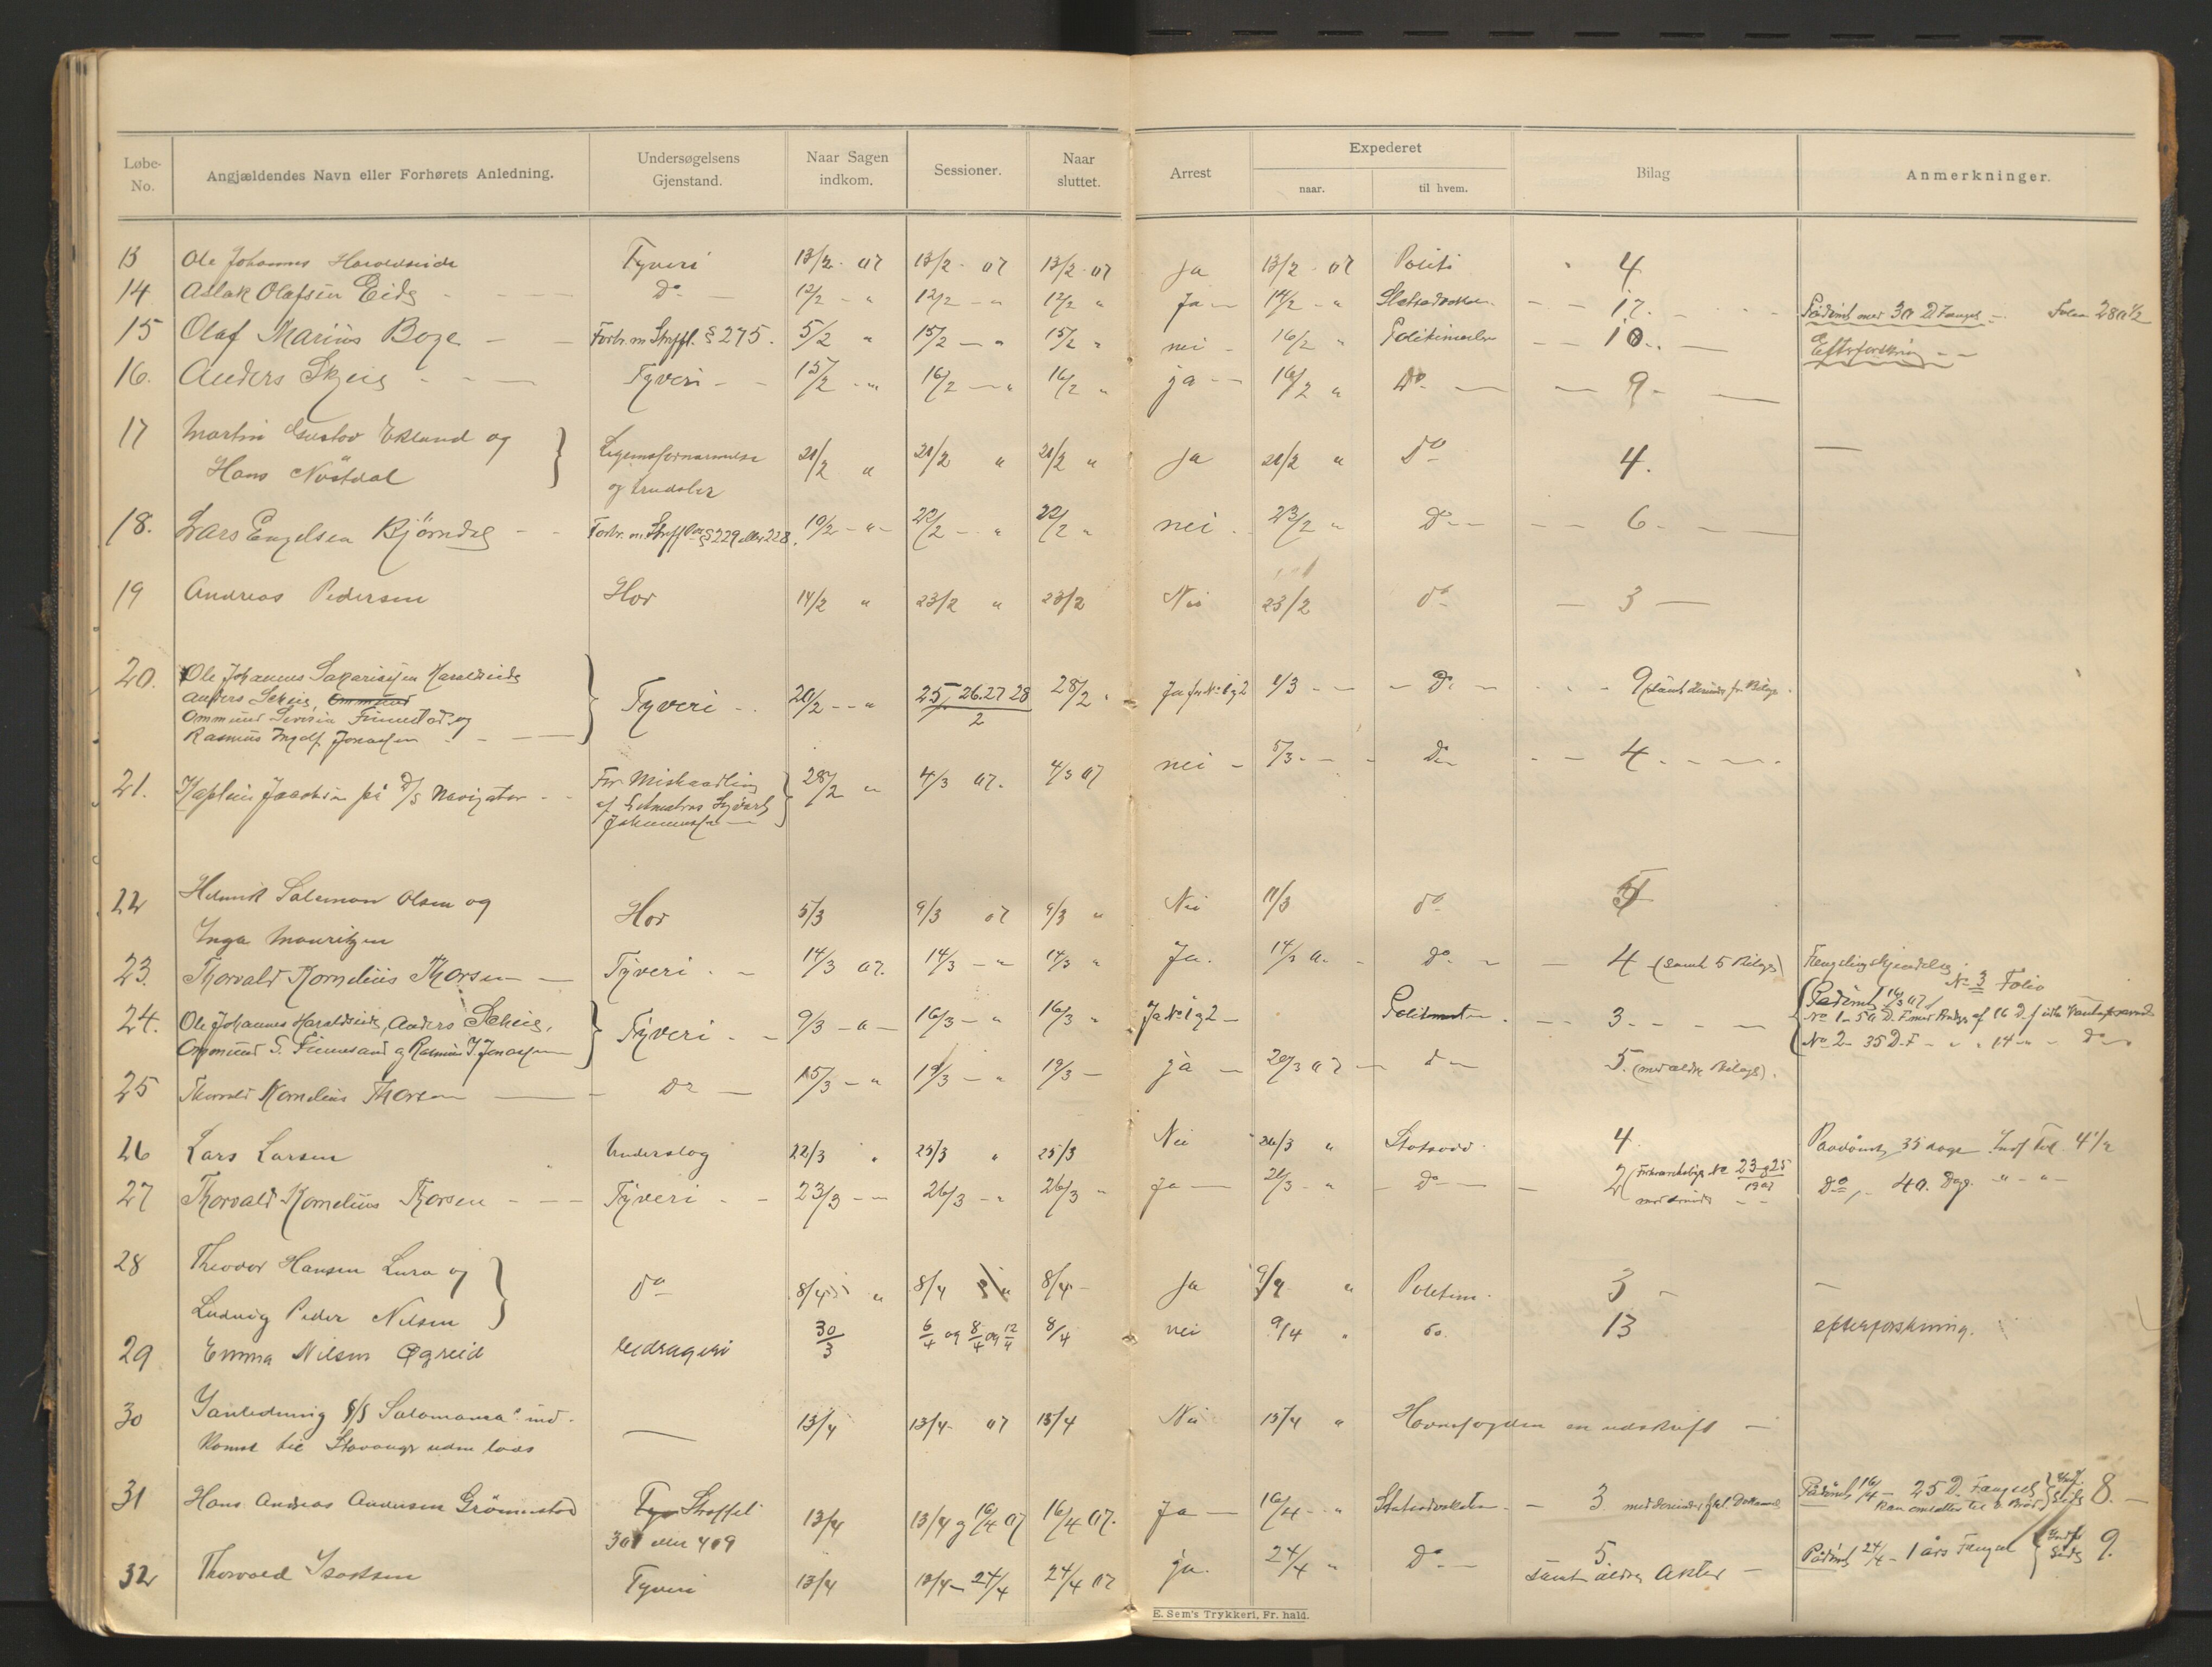 Løbe-No. Angjældendes Navn eller Forhørets Anledning. Undersøgelsens Gjenstand. Naar Sagen indkom. Sessioner. Naar sluttet. Arrest Expederet naar. til hvem. Bilag Anmerkninger.
13 Ole Johannes Haraldseide Tyveri 13/2 07 13/2 07 13/2 07 Ja 13/2 07 Politi 4
14 Aslak Olafsen Eide Do 12/2 " 12/2 " 12/2 " Ja 14/2 " 17. Pådømt med 30 D Fængs
15 Olaf Marius Boge Forbr. m Straffl. § 275. 5/2 " 15/2 " 15/2 " nei 16/2 " Politimester 10 Efterforskning
16. Anders Skeie Tyveri 15/2 " 16/2 " 16/2 " ja 16/2 " Do 9
17 Martin Gustav Eklund og Legemsfornærmelse 21/2 " 21/2 " 21/2 " Ja 21/2 " do 4. —
Hans Nöstdal og trudsler
18. Lars Engelsen Björndal Forbr. m. Straffl § 229 eller 228. 19/2 " 22/2 " 22/2 " nei 23/2 " Do 6
19 Andreas Pedersen Hor 14/2 " 23/2 " 23/2 Nei 23/2 do 3
20. Ole Johannes Sakariasen Haraldseide
Anders Skeie, Ommund
Ommund Severin Finnesand og Tyveri 20/2 " 25, 26. 27 28/2 28/2 " Ja for No 1 og 2 1/3 Do 9
Rasmus Ingolf Jonassen
21. Kaptein Jacobsen på D/S Navigator For Mishandling 28/2 " 4/3 07. 4/3 07 nei 5/3 Do 4
af
22 Henrik Salemon Olsen og Hor 5/3 9/3 07 9/3 " Nei 11/3 do
Inga Mauritzen
23. Thorvald Kornelius Thorsen Tyveri 14/3 07. 14/3 " 14/3 " Ja. 14/3 do 4 (samt 5 Bilage) Fængslingskjendelse
No 3 Folio
24. Ole Johannes Haraldseide, Anders Skeie, Tyveri 9/3 " 16/3 " 16/3 " Ja No 1 og 2 Politimester 3. Pådømt 16/3 07
Ommund S. Finnesand og Rasmus I. Jonassen No 1 50 D. F. med Fradrag af 16 D. for
No 2 35 D. F. " " 14 " Do
25 Thorvald Kornelius Thorsen Do 15/3 " 19/3 " 19/3 ja 20/3 07 do 5. (med ældre Bilage).
26 Lars Larsen Underslag 22/3 " 25/3 " 25/3 Nei 26/3 " Statsadv. 4 Paadømt 35 dage 4 1/2
27 Thorvald Kornelius Thorsen Tyveri 23/3 " 26/3 " 26/3 " Ja 26/3 " Do 2 23 og 25 1907 Do 40. Dage " "
28 Theodor Hansen Lura og do 8/4 " 8/4 8/4 Ja 9/4 " Politim. 3 —
Ludvig Peder Nilsen
29 Emma Nilsen Øgreid bedrageri 30/3 6/4 og 8/4 og 12/4 8/4 nei 9/4 " do. 13 efterforskning.
30 I anledning S/S "Salamanca" ind- — 13/4 13/4 07 13/4 Nei 15/4 " Havnefogden en udskrift —
komst til Stavanger uden lods
31 Hans Andreas Andersen Grönnestad Tyv Straffel 13/4 13/4 og 16/4 07 16/4 07. Ja 16/4 Statsadvokaten 3 Pådømt 16/4 - 25 D. Fængsel Indf. Side 8.
301 eller 409
32 Thorvald Isaksen Tyveri 13/4 13/4 - 24/4 24/4 07 ja. 24/4 " Do 5. Pådømt 24/4 - 1 års Fængsel Indf. Side 9.
samt ældre Akter
E. Sem's Trykkeri, Fr. hald.